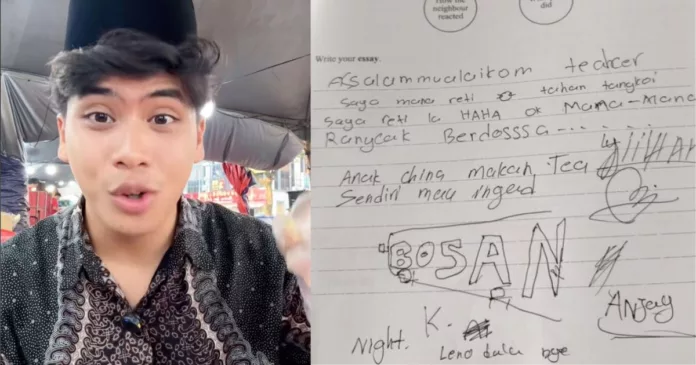 How the
neighbour
reacted
did
Write your essay.
Assalammualaikom teacher
saya mana reti tahan tangkai
saya reti la HAHA ok Mama-Mana
Ranycak Berdosssa ... ...
Anak china makan Tea
Sendiri mau inged
BOSAN
ANJAY
Night. K.
Leno dulu bye